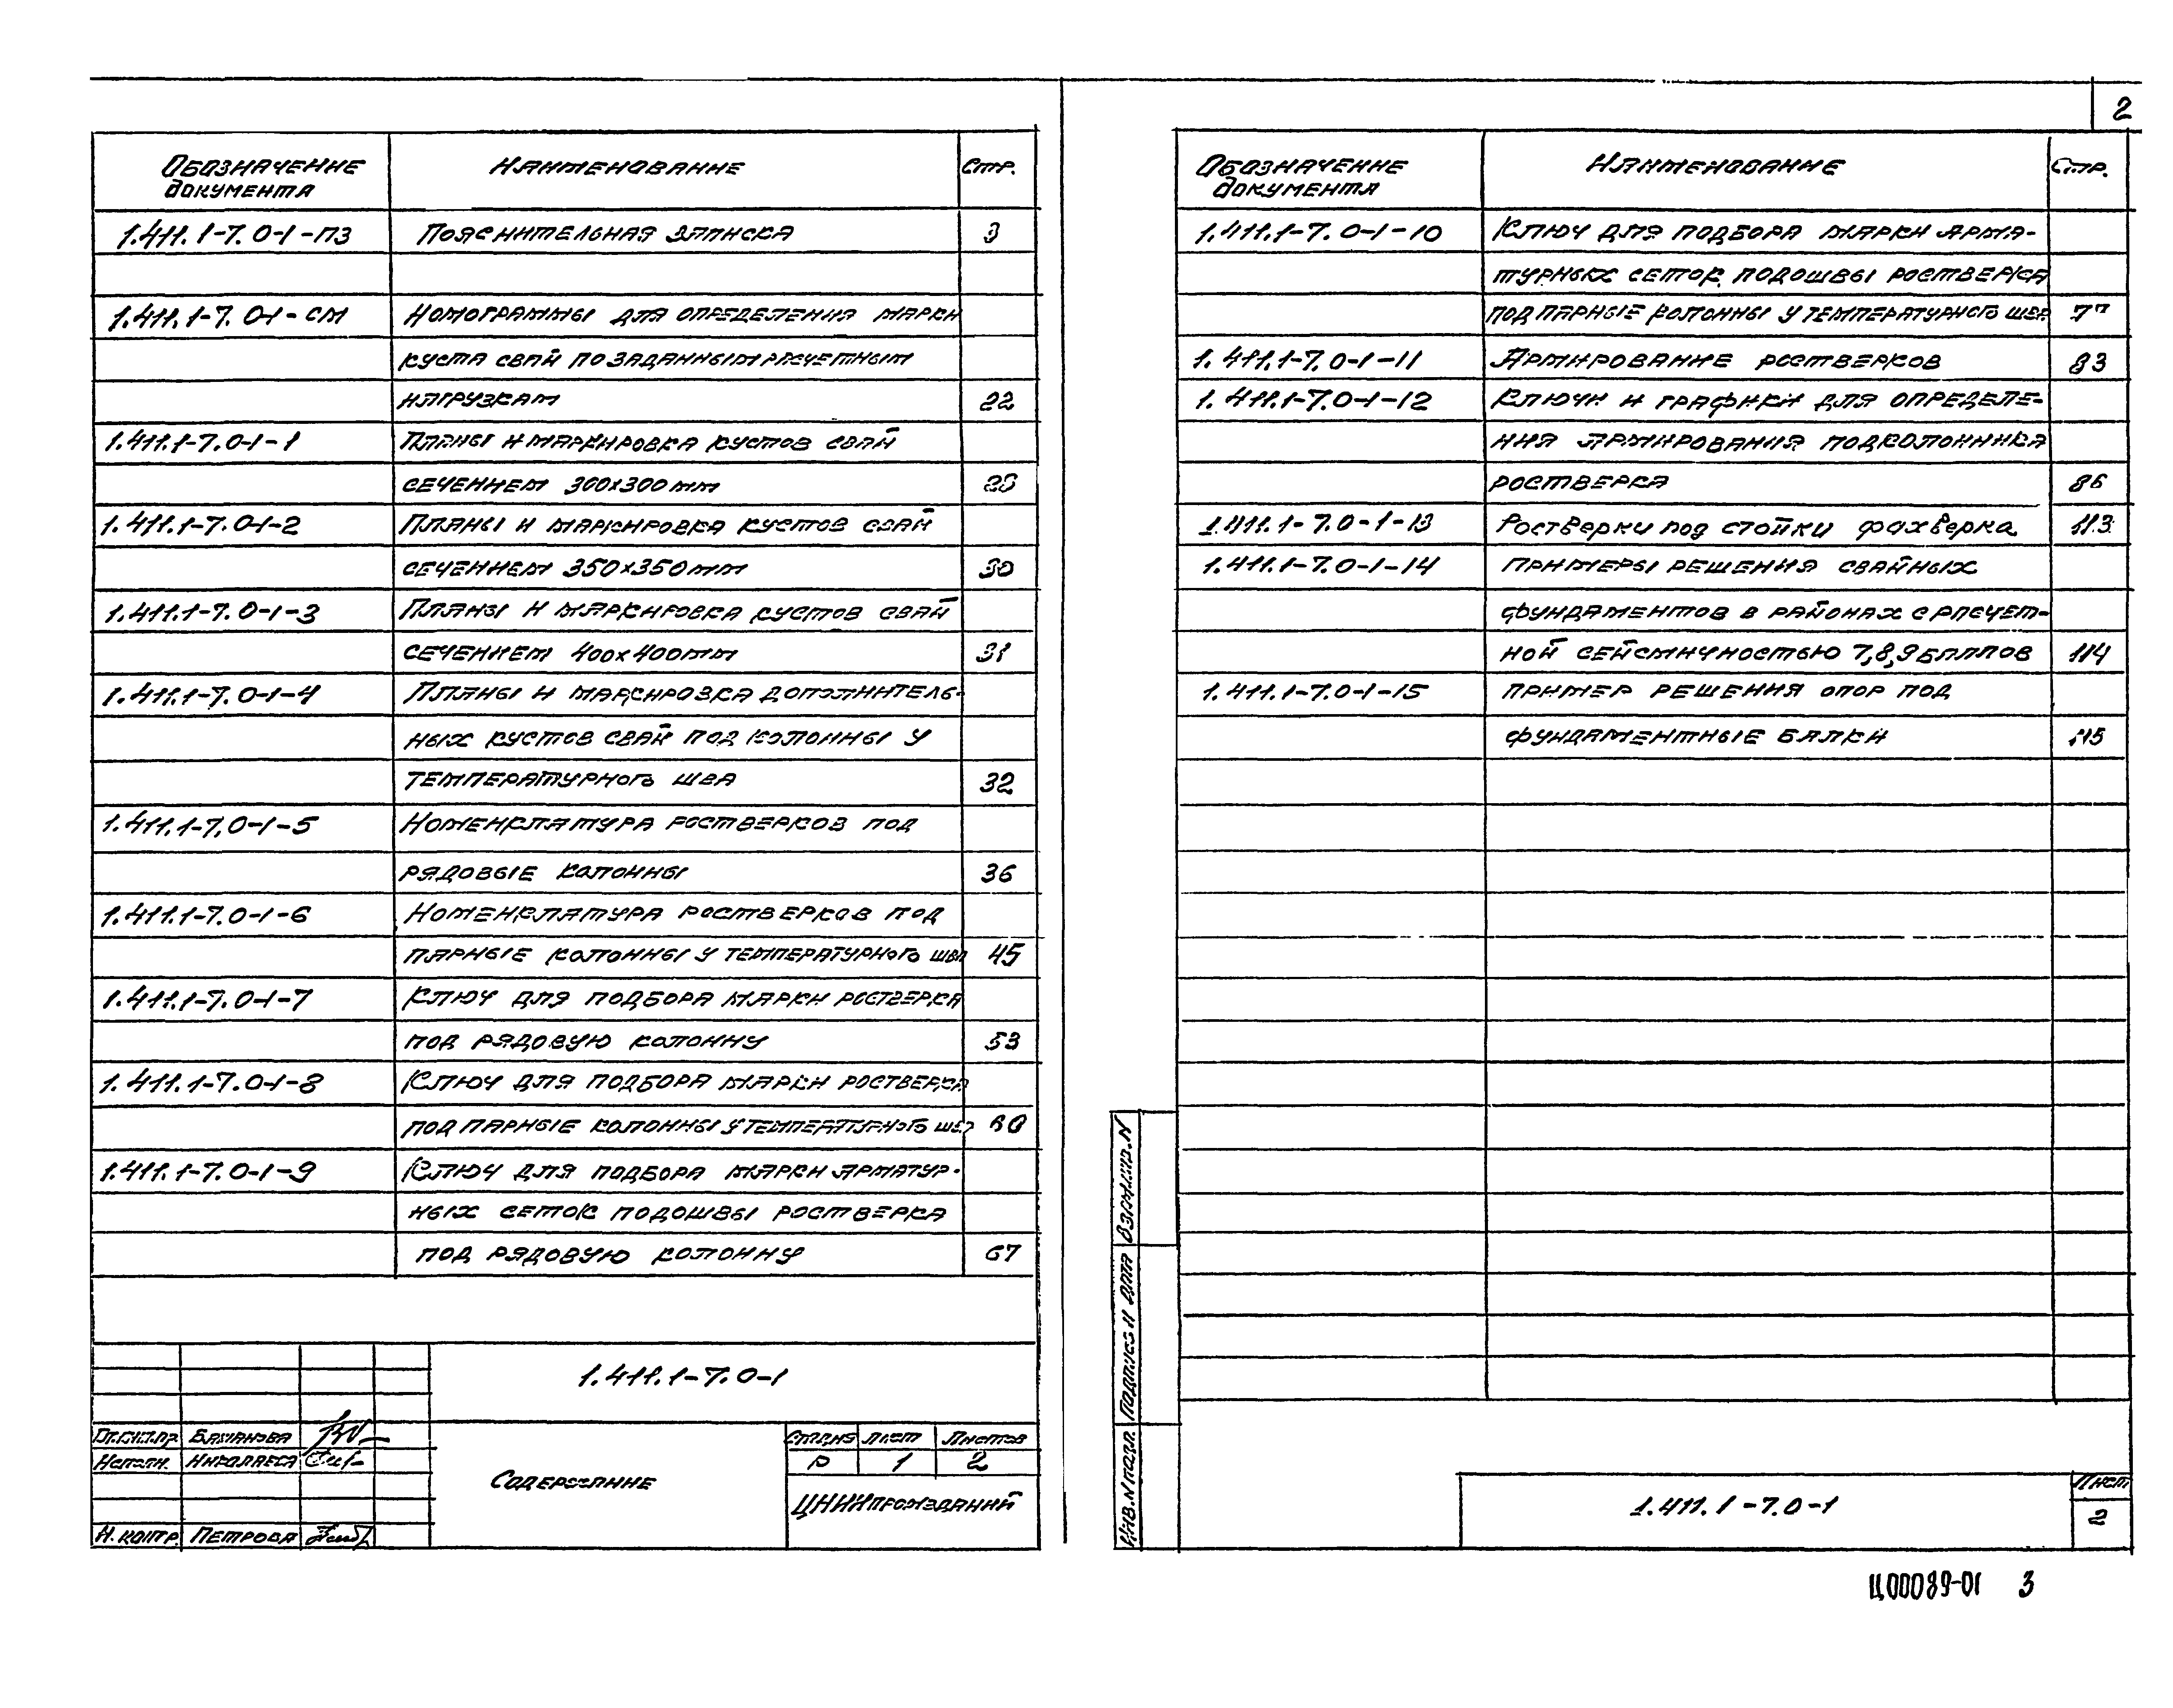 2
Обозначение документа Наименование Стр.
1.411.1-7.0-1-ПЗ Пояснительная записка 3
1.411.1-7.0-1-СМ Номограммы для определения марки
куста свай по заданным расчетным
нагрузкам 22
1.411.1-7.0-1-1 Планы и маркировка кустов свай
сечением 300х300мм
1.411.1-7.0-1-2 Планы и маркировка кустов свай
сечением 350х350мм 30
1.411.1-7.0-1-3 Планы и маркировка кустов свай
сечением 400х400мм 31
1.411.1-7.0-1-4 Планы и маркировка дополнитель-
ных кустов свай под колонны у
температурного шва 32
1.411.1-7.0-1-5 Номенклатура ростверков под
рядовые колонны 36
1.411.1-7.0-1-6 Номенклатура ростверков под
парные колонны у температурного шва 45
1.411.1-7.0-1-7 Ключ для подбора марки ростверка
под рядовую колонну 53
1.411.1-7.0-1-8 Ключ для подбора марки ростверка
под парные колонны у температурного шва 60
1.411.1-7.0-1-9 Ключ для подбора марки арматур-
ных сеток подошвы ростверка
под рядовую колонну 67
1.411.1-7.0-1
Гл.спец. Баканова
Исполн. Николаева
Н. контр. Петрова
Содержание
Стадия Лист Листов
Р 1 2
ЦНИИпромзданий
Обозначение документа Наименование Стр.
1.411.1-7.0-1-10 Ключ для подбора марки арма-
турных сеток подошвы ростверка
под парные колонны у температурного шва 77
1.411.1-7.0-1-11 Армирование ростверков 83
1.411.1-7.0-1-12 Ключи и графики для определе-
ния армирования подколонника
ростверка 86
1.411.1-7.0-1-13 Ростверки под стойки фахверка 113
1.411.1-7.0-1-14 Примеры решения свайных
фундаментов в районах с расчет-
ной сейсмичностью 7,8,9 баллов 114
1.411.1-7.0-1-15 Пример решения опор под
фундаментные балки 115
Взам.инв.N
Подпись и дата
Инв.N подл.
1.411.1-7.0-1
Лист
2
Ц00089-01 3